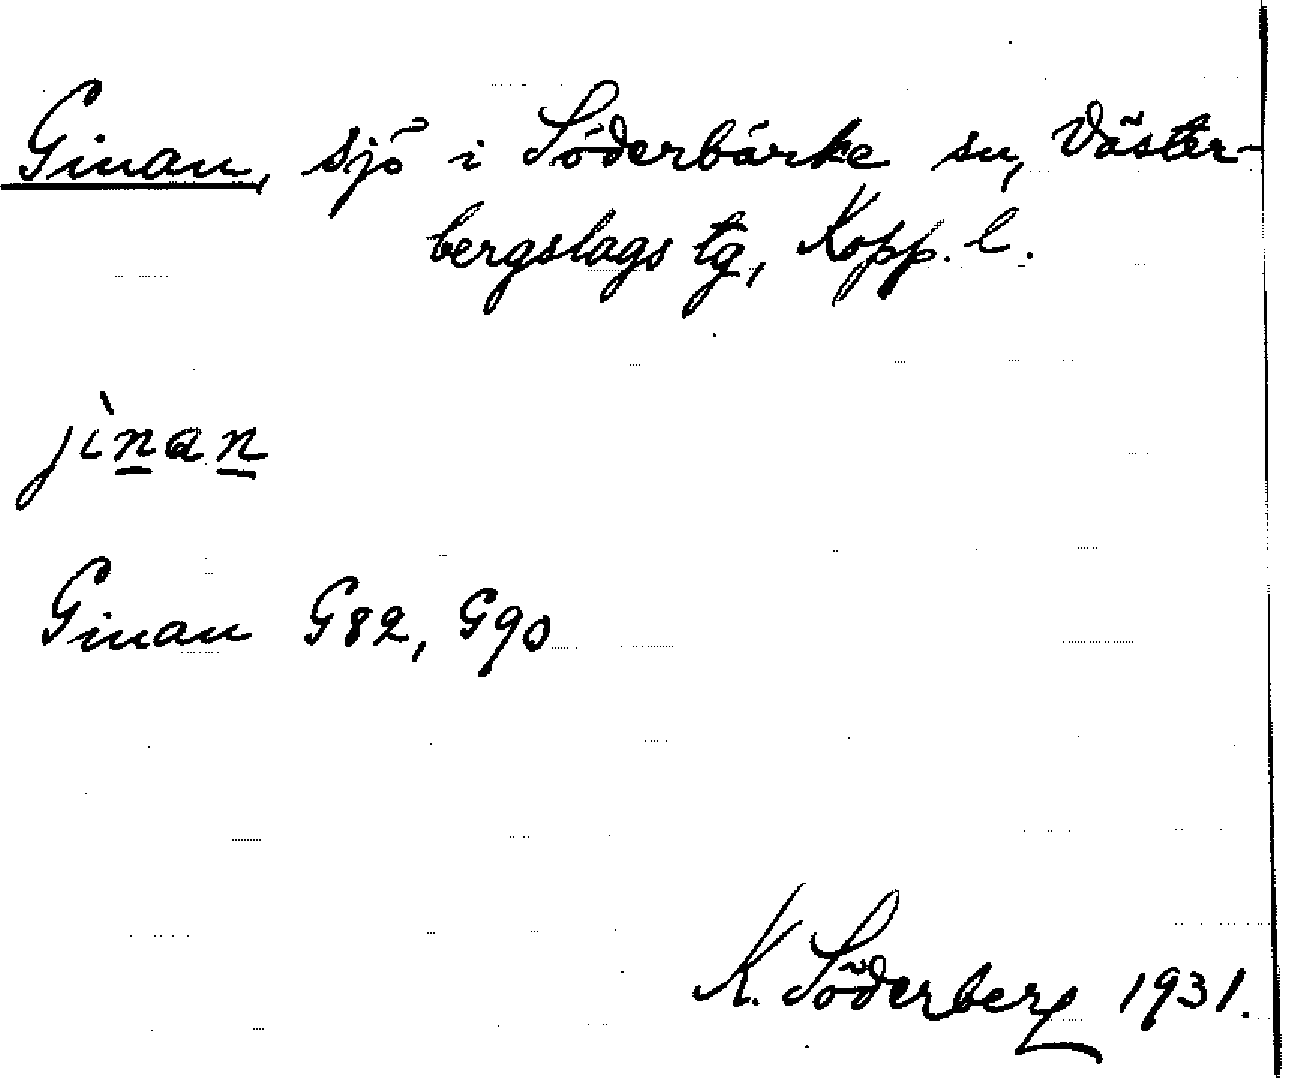 Ginan, sjö i Söderbärke sn, Väster-
bergslags tg, Kopp. l.
jìn̲an̲
Ginan G82, G90
K. Söderberg 1931.